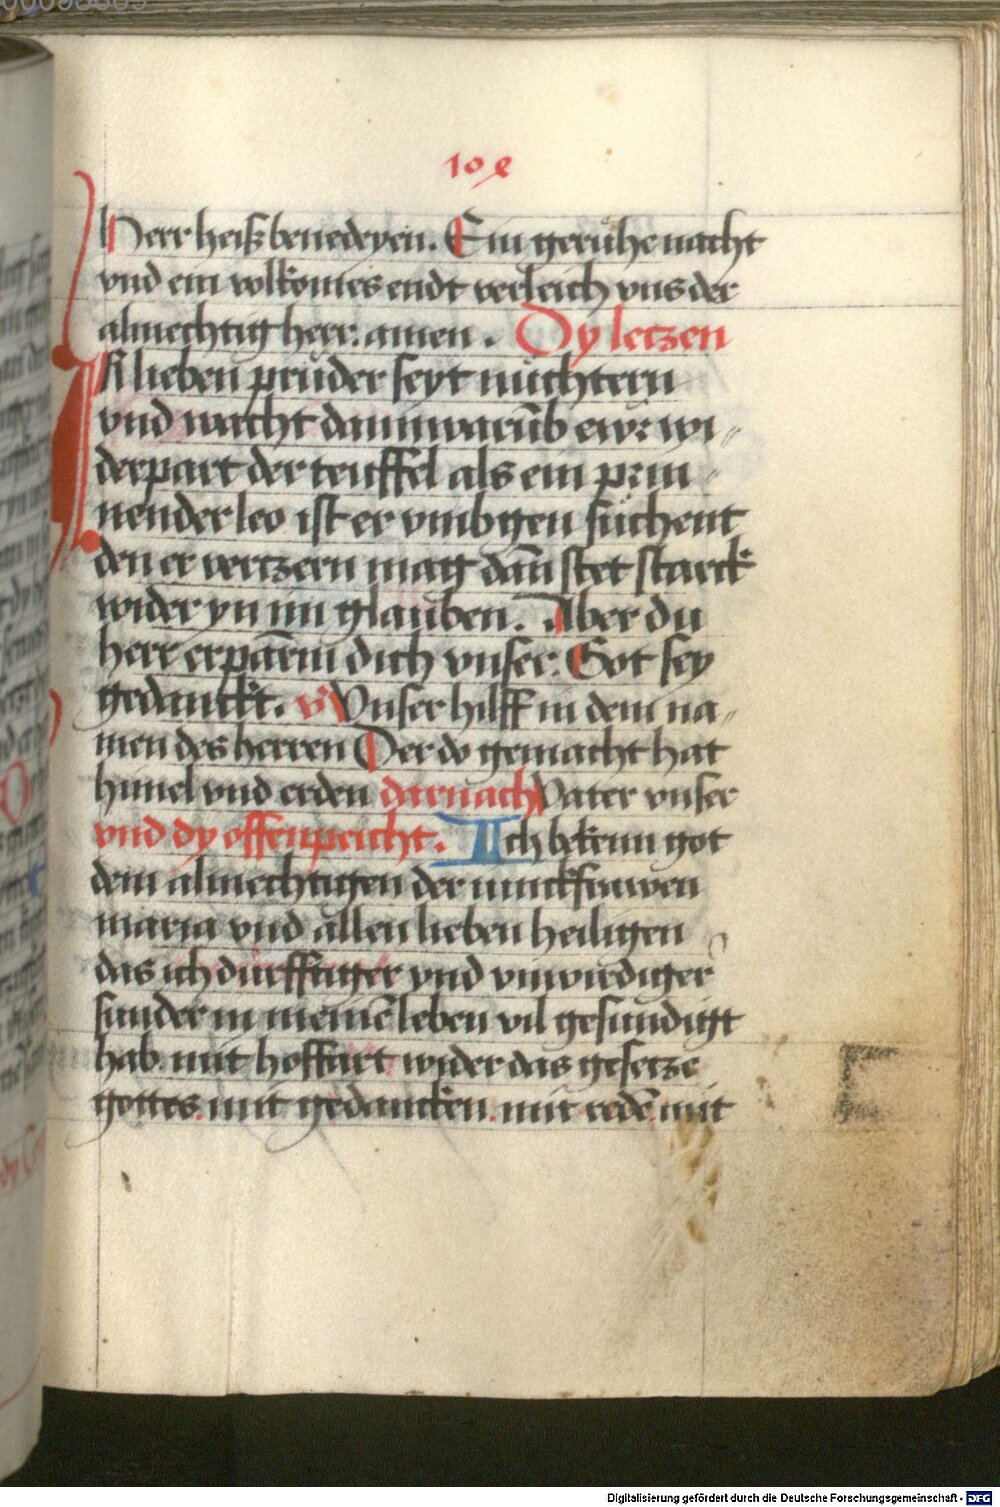 108
Herr heisz benedeyen. Ein geruhe nacht
vnd ein volkomes endt verleich vns der
almechtig herr. amen. Dy letzen
Ir lieben prüder seyt nüchtern
vnd wacht dann warūb ewr wi„
derpart der teuffel als ein prin„
nender leo ist er vmbgen suchent
den er vertzern mag dañ stet starck
wider yn im glauben. Aber du
herr erparm̄ dich vnser. Got sey
gedanckt. v̄ Vnser hilff in dem na„
men des herren Der do gemacht hat
himel vnd erden darnach Pater vnser
vnd dy offenpeicht. Ich bekenn got
dem almechtigen der iunckfrawen
maria vnd allen lieben heiligen
das ich dürfftiger vnd vnwirdiger
sunder in meinē leben vil gesundigt
hab. mit hoffart wider das gesetze
gottes. mit gedancken. mit redē. mit
Digitalisierung gefördert durch die Deutsche Forschungsgemeinschaft - DFG